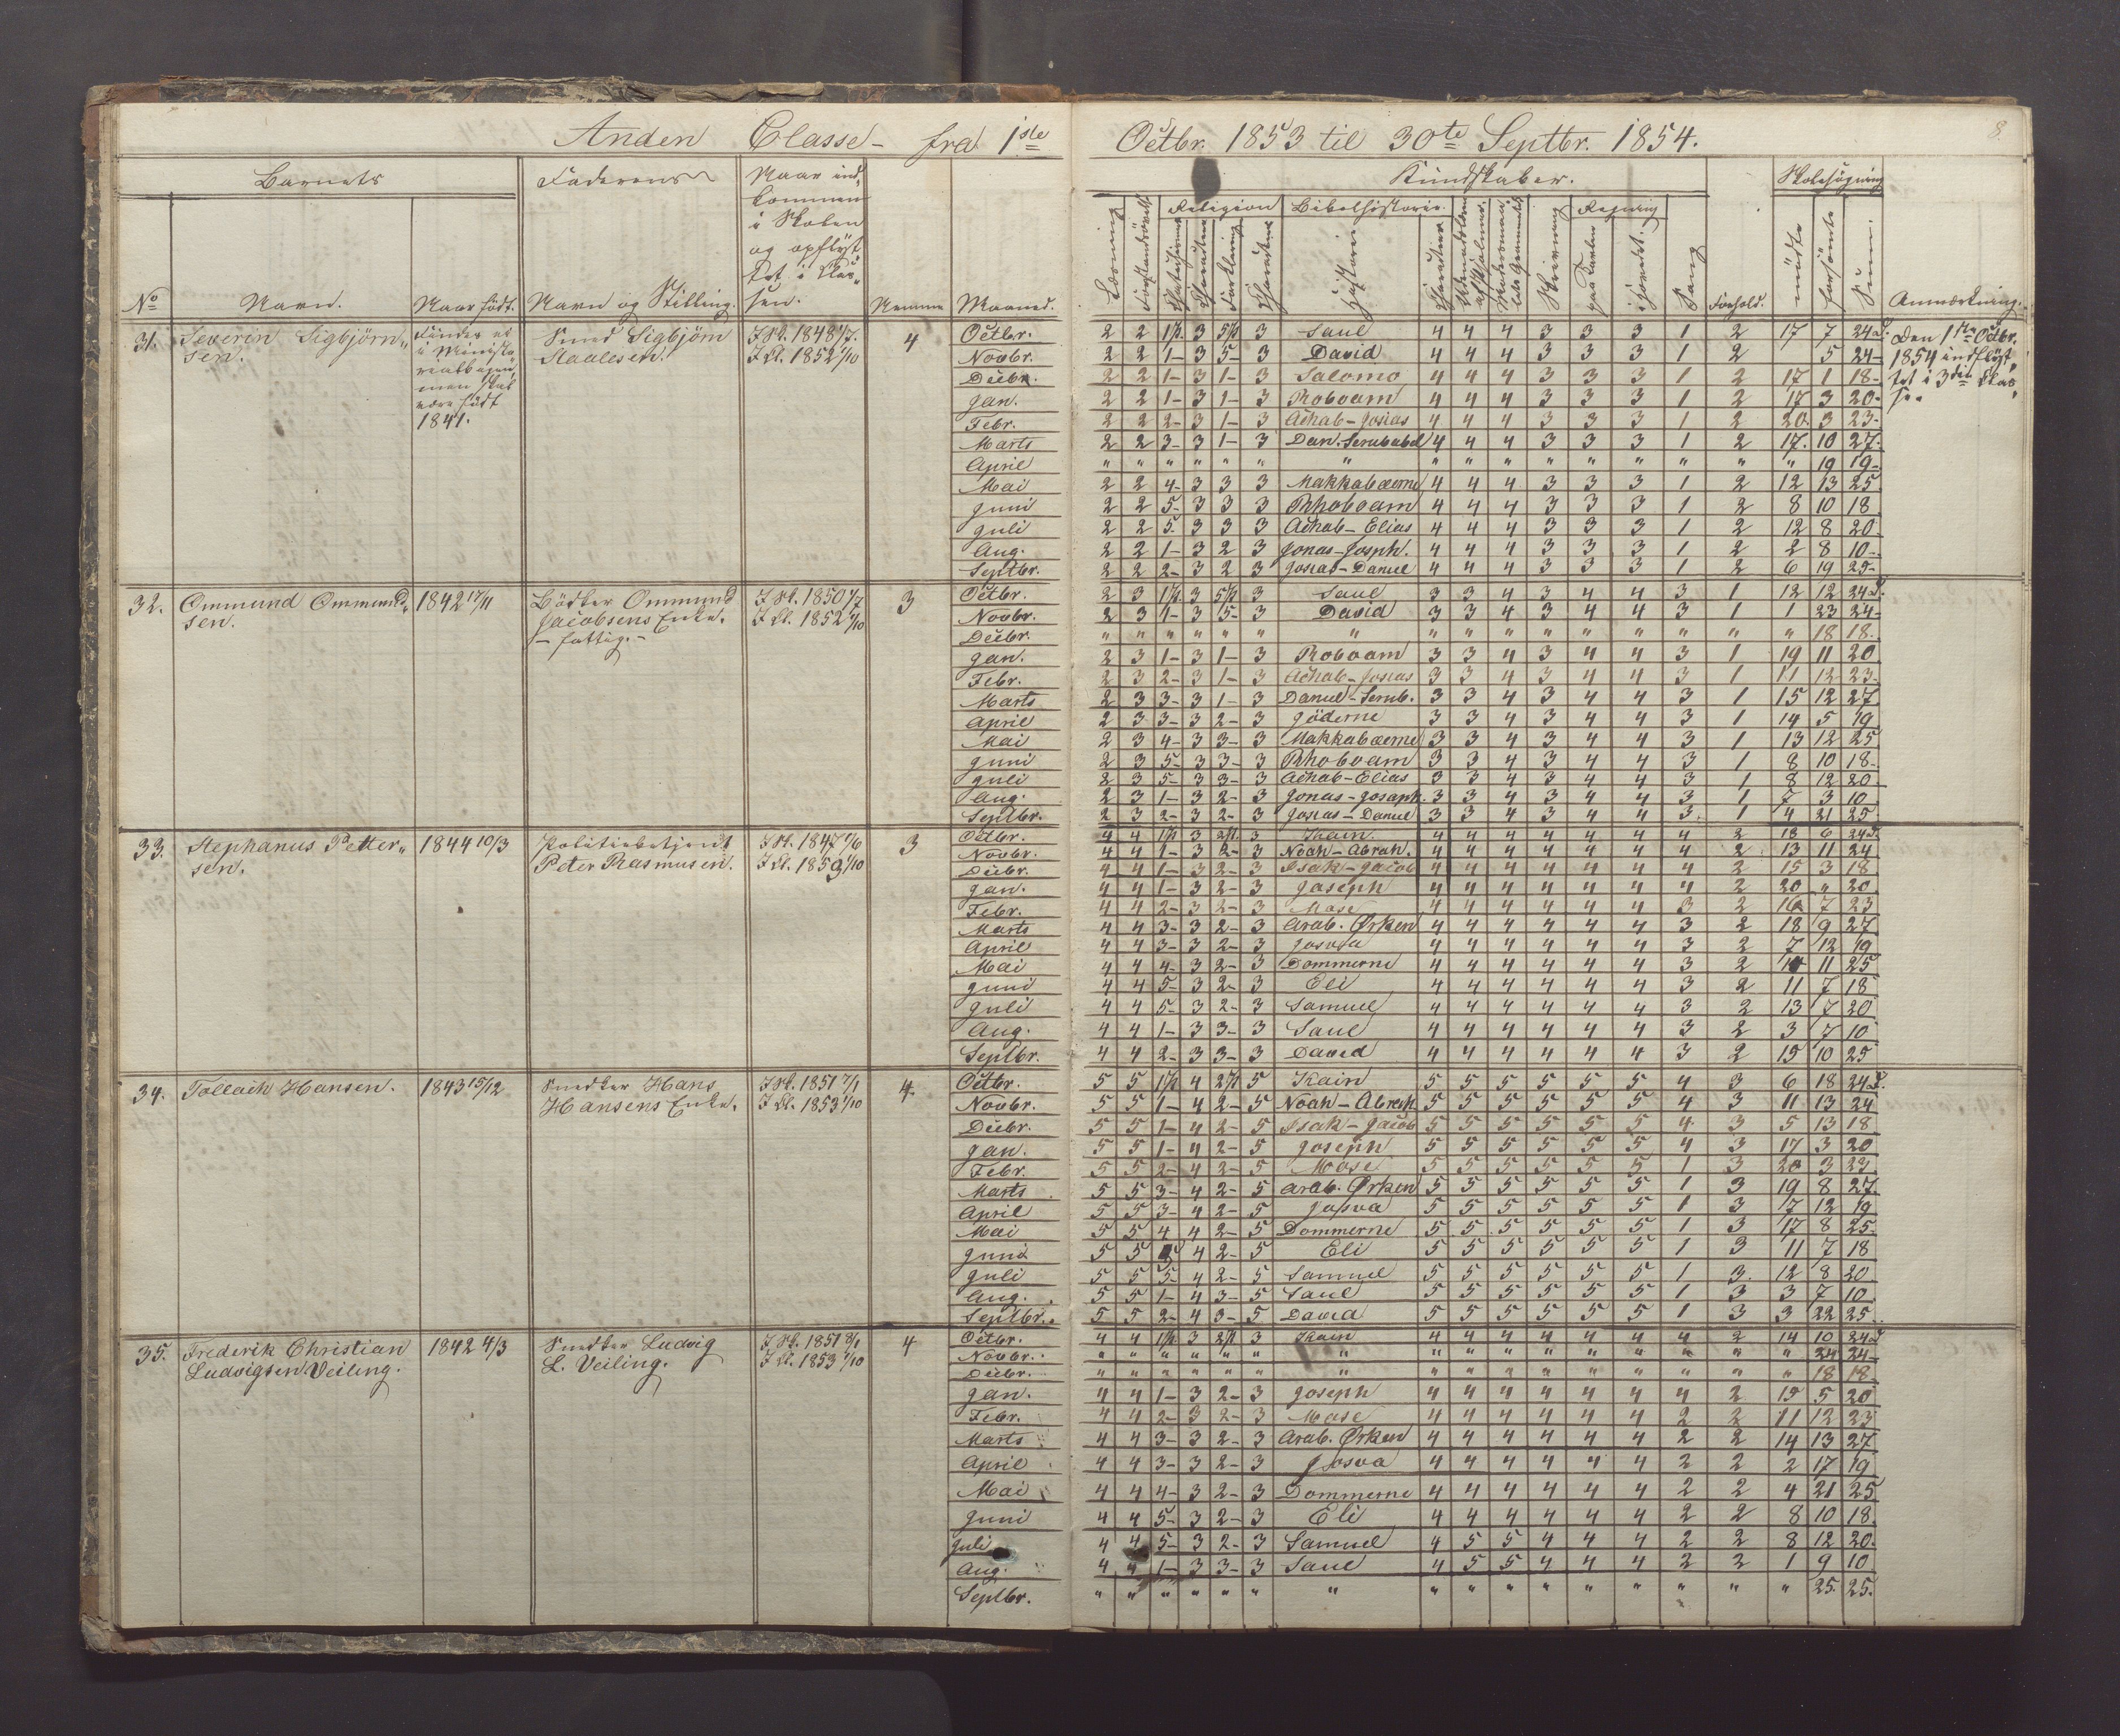 Anden Classe fra 1ste Octbr. 1853 til 30te Septbr. 1854.
8.
Barnets
Faderens
Naar ind-
kommen
i Skolen
og opflyt-
tet i Clas-
sen.
Kundskaber.
Skolesøgning
Religion Bibelhistorie Regning
No Navn. Naar født. Navn og Stilling. Nemme Maaned.
Læsning Forklaring Historie Skrivning paa Tavlen i Hovedet. Sang Forhold. mødte forsömte Sum. Anmærkning.
31. Severin Sigbjörn„
sen.
Findes ei
i Ministe
rialbogen,
men skal
være født
1841.
Smed Sigbjörn
Aaalesen.
I Sk. 1848 1/7.
I Cl. 1852 1/10
4
Den 1ste Octbr.
1854 indflyt„
tet i 3die Clas„
se.
Octbr. 2 2 1/1. 3 5/1 3 Saul 4 4 4 3 3 3 1 2 17 7 24 S.
Novbr. 2 2 1- 3 5- 3 David 4 4 4 3 3 3 1 2 5 24-
Decbr. 2 2 1- 3 1- 3 Salomo 4 4 4 3 3 3 1 2 17 1 18-
Jan. 2 2 1- 3 1- 3 Roboam 4 4 4 3 3 3 1 2 17 3 20-
Febr. 2 2 2- 3 1- 3 Achab-Josias 4 4 4 3 3 3 1 2 20. 3 23-
Marts 2 2 3- 3 1- 3 Dan. Serubabel 4 4 4 3 3 3 1 2 17. 10 27.
April " " " " " " " " " " " " " " " " 19 19-
Mai 2 2 4- 3 3 3 Makkabæerne 4 4 4 3 3 3 1 2 12 13 25
Juni 2 2 5- 3 3 3 Rhoboam 4 4 4 3 3 3 1 2 8 10 18
Juli 2 2 5. 3 3 3 Achab-Elias 4 4 4 3 3 3 1 2 12 8 20
Aug. 2 2 1- 3 2 3 Jonas-Josaph. 4 4 4 3 3 3 1 2 2 8 10-
Septbr. 2 2 2- 3 2 3 Josias-Daniel 4 4 4 3 3 3 1 2 6 19 25-
32. Ommund Ommund„
sen.
1842 17/11
Bödker Ommund
Jacobsens Enke.
- fattig. -
I Sk. 1850 1/7
I Cl. 1852 1/10
3
Octbr. 2 3 1/1. 3 5/1 3 Saul 3 3 4 3 4 4 3 1 12 12 24 S.
Novbr. 2 3 1- 3 5- 3 David 3 3 4 3 4 4 3 1 1 23 24-
Decbr. " " " " " " " " " " " " " " " " 18 18.
Jan. 2 3 1- 3 1- 3 Roboam 3 3 4 3 4 4 3 1 19 11 20
Febr. 2 3 2- 3 1- 3 Achab-Josias 3 3 4 3 4 4 3 1 11 12 23-
Marts 2 3 3- 3 1- 3 Daniel-Serub. 3 3 4 3 4 4 3 1 15 12 27
April 2 3 3- 3 2- 3 Jöderne 3 3 4 3 4 4 3 1 14 5 19
Mai 2 3 4- 3 3- 3 Makkabæerne 3 3 4 3 4 4 3 1 13 12 25
Juni 2 3 5- 3 3- 3 Rhoboam 3 3 4 3 4 4 3 1 8 10 18-
Juli 2 3 5- 3 3- 3 Achab-Elias 3 3 4 3 4 4 3 1 8 12 20
Aug. 2 3 1- 3 2- 3 Jonas-Josaph. 3 3 4 3 4 4 3 1 7 3 10
Septbr. 2 3 2- 3 2- 3 Josias-Daniel 3 3 4 3 4 4 3. 1 4 21 25
33. Stephanus Petter„
sen.
1844 10/3
Politiebetjent
Peter Rasmusen.
I Sk. 1847 1/6
I Cl. 1853 1/10
3
Octbr. 4 4 1/1 3 2/1. 3 Kain. 4 4 4 4 4 4 4 2 18 6 24 S.
Novbr. 4 4 1- 3 2- 3 Noah-Abrah. 4 4 4 4 4 4 4 2 13 11 24
Decbr. 4 4 1- 3 2- 3 Isak-Jacob 4 4 4 4 4 4 4 2 15 3 18
Jan. 4 4 1- 3 2- 3 Joseph 4 4 4 4 4 4 4 2 20 " 20
Febr. 4 4 2- 3 2- 3 Mose 4 4 4 4 4 4 3 2 16 7 23
Marts 4 4 3- 3 2- 3 Arab. Ørken 4 4 4 4 4 4 3 2 18 9 27
April 4 4 3- 3 2- 3 Josva 4 4 4 4 4 4 3 2 7 12 19
Mai 4 4 4- 3 2- 3 Dommerne 4 4 4 4 4 4 3 2 14 11 25
Juni 4 4 5- 3 2- 3 Eli 4 4 4 4 4 4 3 2 11 7 18
Juli 4 4 5- 3 2- 3 Samuel 4 4 4 4 4 4 3 2 13 7 20
Aug. 4 4 1- 3 3- 3 Saul 4 4 4 4 4 4 3 2 3 7 10
Septbr. 4 4 2- 3 3- 3 David 4 4 4 4 4 4 3 2 15 10 25
34. Tollach Hansen.
1843 15/12
Snedker Hans
Hansens Enke.
I Sk. 1851 7/1
I Cl. 1853 1/10
4.
Octbr. 5 5 1/1 4 2/1 5 Kain 5 5 5 5 5 5 4 3 6 18 24 S.
Novbr. 5 5 1- 4 2- 5 Noah-Abrah. 5 5 5 5 5 5 4 3 11 13 24
Decbr. 5 5 1- 4 2- 5 Isak-Jacob 5 5 5 5 5 5 4 3 5 13 18
Jan. 5 5 1- 4 2- 5 Joseph 5 5 5 5 5 5 4 3 17 3 20
Febr. 5 5 2- 4 2- 5 Mose 5 5 5 5 5 5 1 3 20 3 23
Marts 5 5 3- 4 2- 5 Arab. Ørken 5 5 5 5 5 5 1 3 19 8 27
April 5 5 3- 4 2- 5 Josva 5 5 5 5 5 5 1 3 17 12 19
Mai 5 5 4 4 2- 5 Dommerne 5 5 5 5 5 5 1 3 17 8 25
Juni 5 5 5 4 2- 5 Eli 5 5 5 5 5 5 1 3 11 7 18
Juli 5 5 5- 4 2- 5 Samuel 5 5 5 5 5 5 1 3. 12 8 20
Aug. 5 5 1- 4 3- 5 Saul 5 5 5 5 5 5 1 3 3 7 10
Septbr. 5 5 2- 4 3- 5 David 5 5 5 5 5 5 1 3 3 22 25
35. Frederik Christian
Ludvigsen Veiling.
1842 4/3
Snedker Ludvig
L. Veiling.
I Sk. 1851 8/1
I Cl. 1853 1/10
4
Octbr. 4 4 1/1 3 2/1 3 Kain 4 4 4 4 4 4 4 2 14 10 24 S
Novbr. " " " " " " " " " " " " " " " " 24 24
Decbr. " " " " " " " " " " " " " " " " 18 18
Jan. 4 4 1- 3 2- 3 Joseph 4 4 4 4 4 4 4 2 15 5 20
Febr. 4 4 2- 3 2- 3 Mose 4 4 4 4 4 4 2 2 11 12 23
Marts 4 4 3- 3 2- 3 Arab. Ørken 4 4 4 4 4 4 2 2 14 13 27
April 4 4 3- 3 2- 3 Josva 4 4 4 4 4 4 2 2 2 17 19
Mai 4 4 4- 3 2- 3 Dommerne 4 4 4 4 4 4 2 2 4 21 25
Juni 4 4 5- 3 2- 3 Eli 4 4 4 4 4 4 2 2 8 10 18
Juli 4 4 5- 3 2- 3 Samuel 4 5 5 4 4 4 2 2 8 12 20
Aug. 4 4 1- 3 3- 3 Saul 4 5 5 4 4 4 2 2 1 9 10
Septbr. " " " " " " " " " " " " " " " " 25. 25.